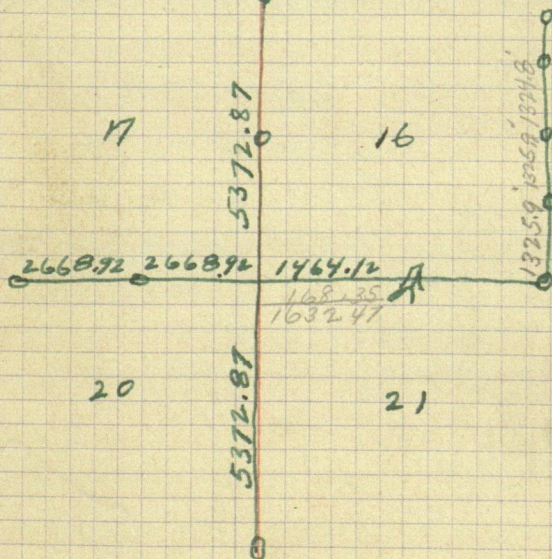 17
5372.87
16
1325.9' 1325.9' 1324.8'
2668.92 2668.92 1464.12
168.35
1632 47
20
5372.87
21